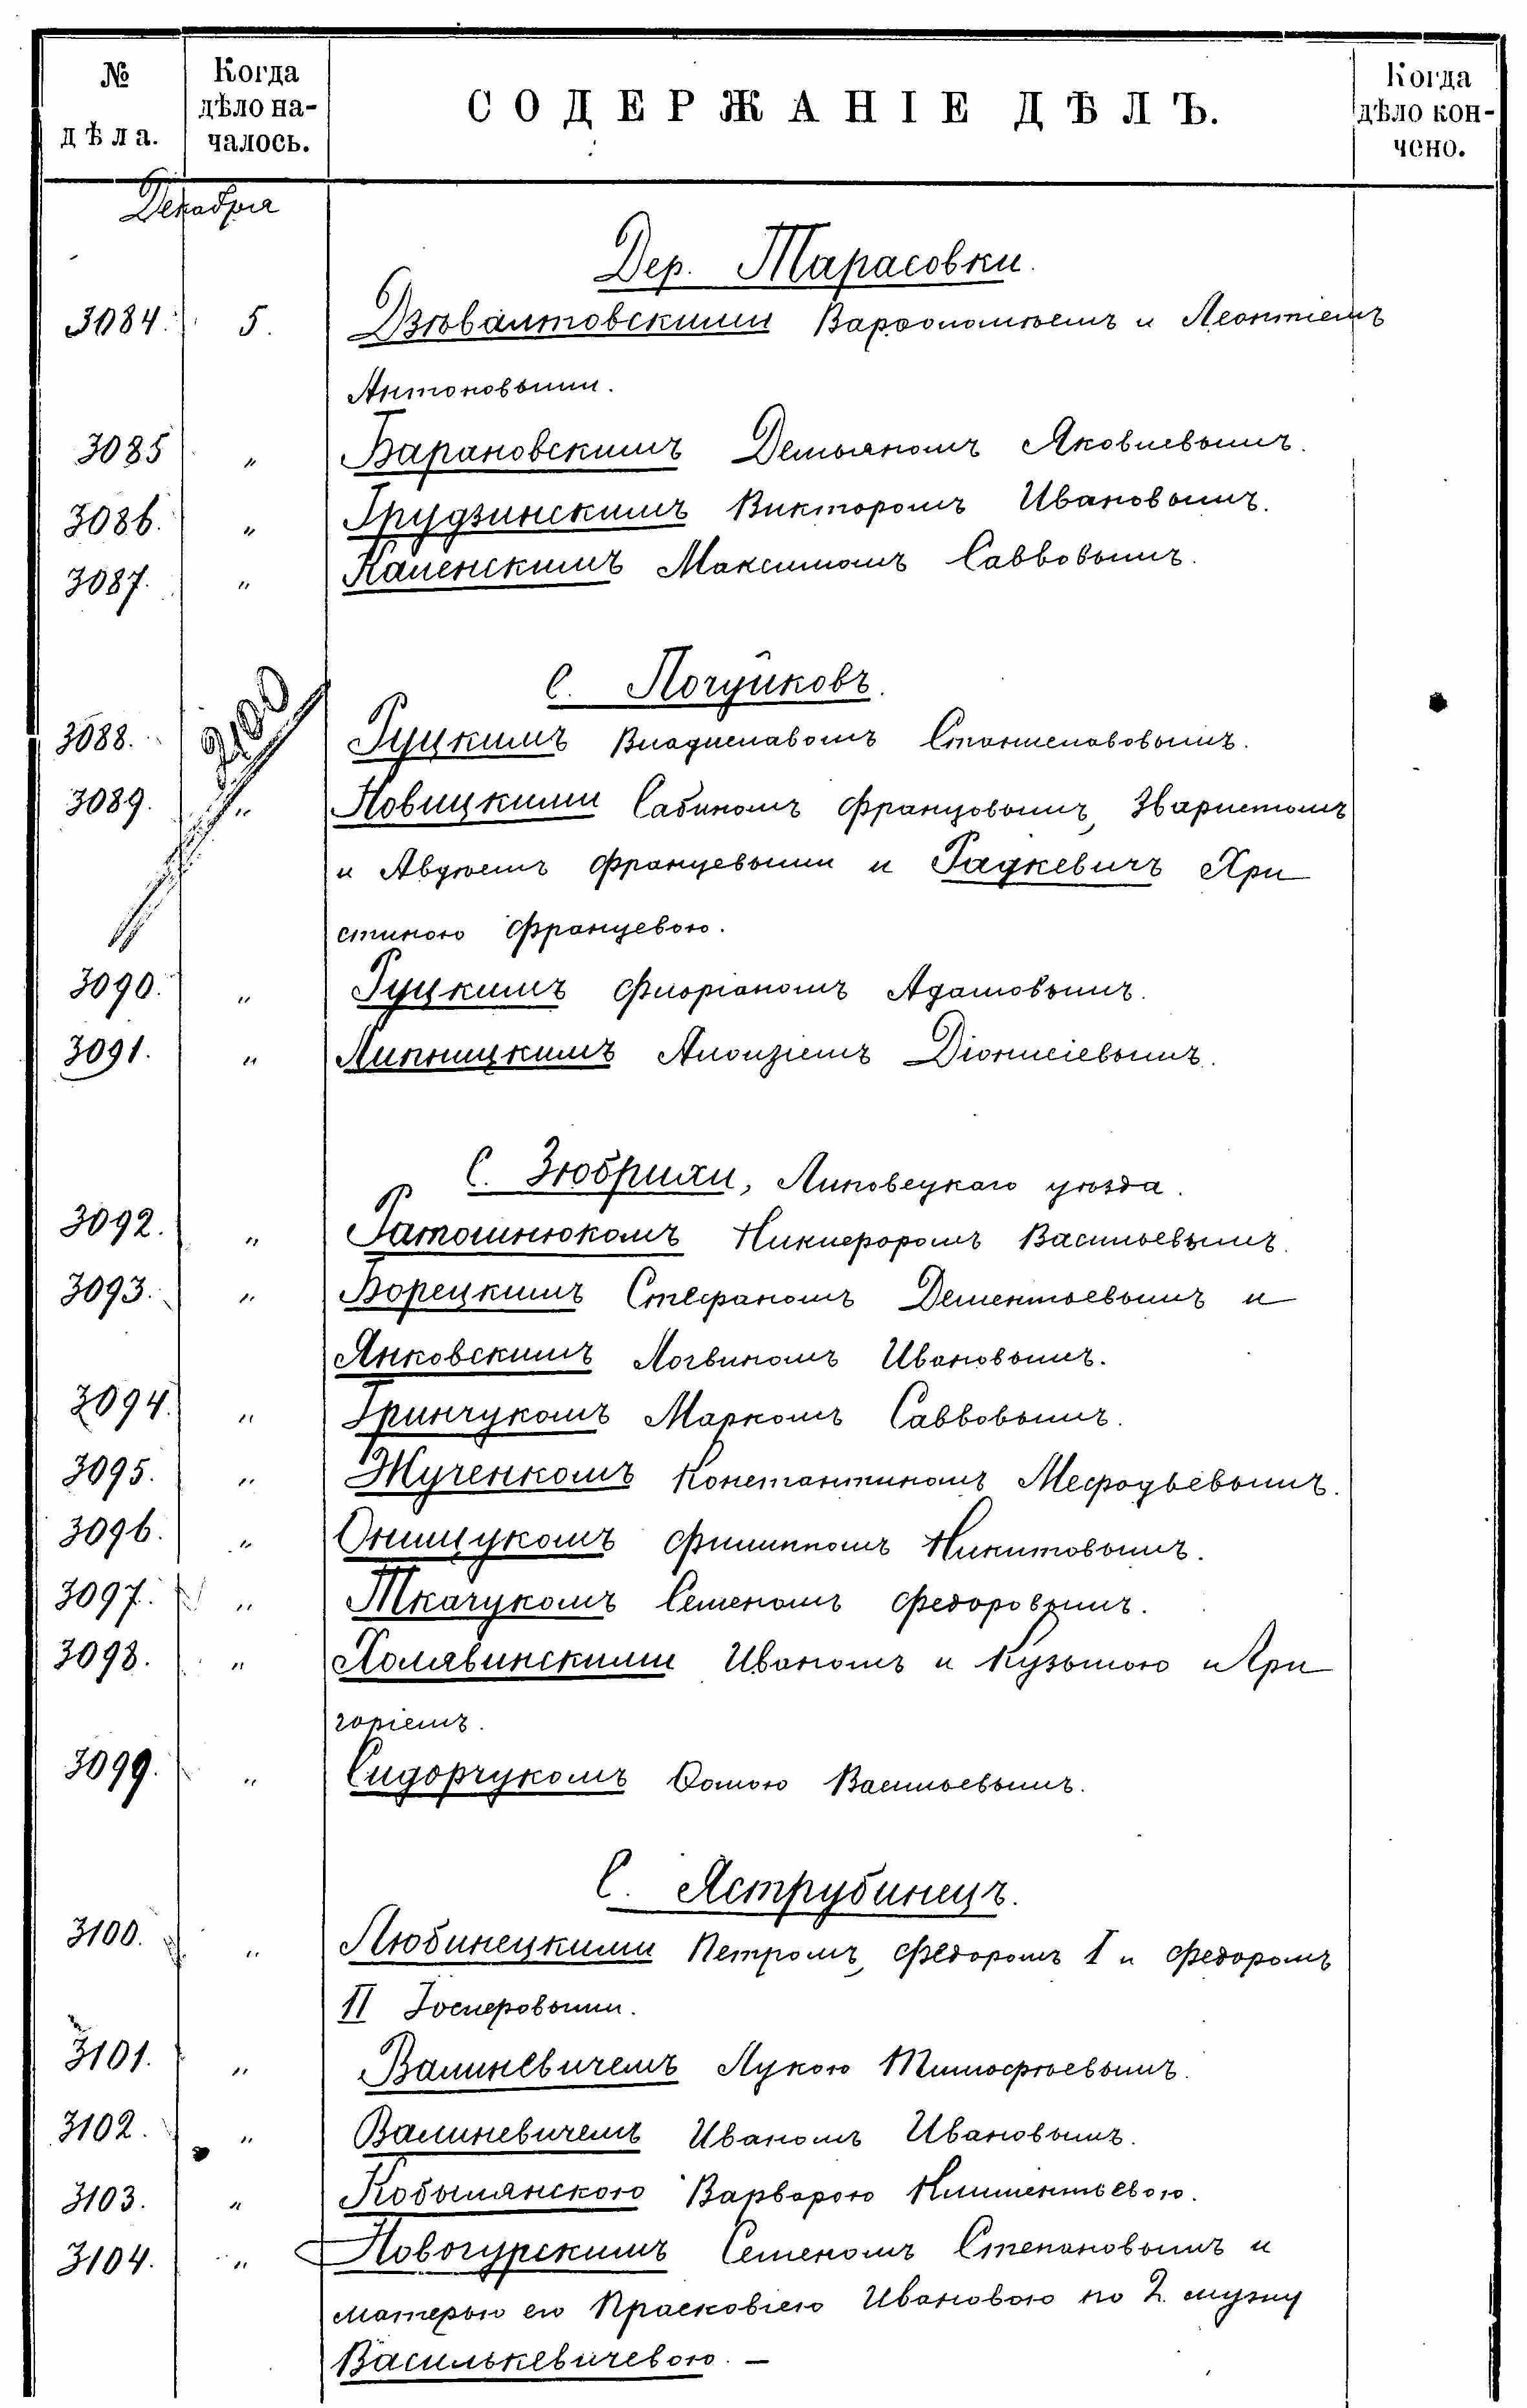 № дѣла.
Когда дѣло на-
чалось.
СОДЕРЖАНІЕ ДѢЛЪ.
Когда дѣло кон-
чено.
Декабря
Дер. Тарасовки.
3084. 5. Дзѣвалтовскими Варѳоломѣемъ и Леонтіемъ
Антоновыми.
3085 " Барановскимъ Демьяномъ Яковлевымъ.
3086. " Грудзинскимъ Викторомъ Ивановымъ.
3087. " Каленскимъ Максимомъ Саввовымъ.
С. Почуйковъ.
3088. Руцкимъ Владиславомъ Станиславовымъ.
3089. " Новицкими Сабиномъ Францовымъ, Эваристомъ
и Авдѣемъ Францевыми и Радкевичъ Хри
стиною Францевою.
3090. " Руцкимъ Флоріаномъ Адамовымъ.
3091. " Липницкимъ Алоизіемъ Діонисіевымъ.
С. Зюбрихи, Липовецкаго уѣзда.
3092. " Ратошнюкомъ Никифоромъ Васильевымъ.
3093. " Борецкимъ Стефаномъ Дементьевымъ и
Янковскимъ Логвиномъ Ивановымъ.
3094. " Гринчукомъ Маркомъ Саввовымъ.
3095. " Жученкомъ Константиномъ Мефодьевымъ.
3096. " Онищукомъ Филиппомъ Никитовымъ.
3097. " Ткачукомъ Семеномъ Федоровымъ.
3098. " Холявинскими Иваномъ и Кузьмою и Гри
горіемъ.
3099. " Сидорчукомъ Ѳомою Васильевымъ.
С. Яструбинецъ.
3100. " Любинецкими Петромъ, Федоромъ I и Федоромъ
II Іосиферовыми.
3101. " Валиневичемъ Лукою Тимофѣевымъ.
3102. " Валиневичемъ Иваномъ Ивановымъ.
3103. " Кобылянскою Варварою Климентьевою.
3104. " Новогурскимъ Семеномъ Степановымъ и
матерью его Прасковіею Ивановою по 2. мужу
Василькевичевою. —